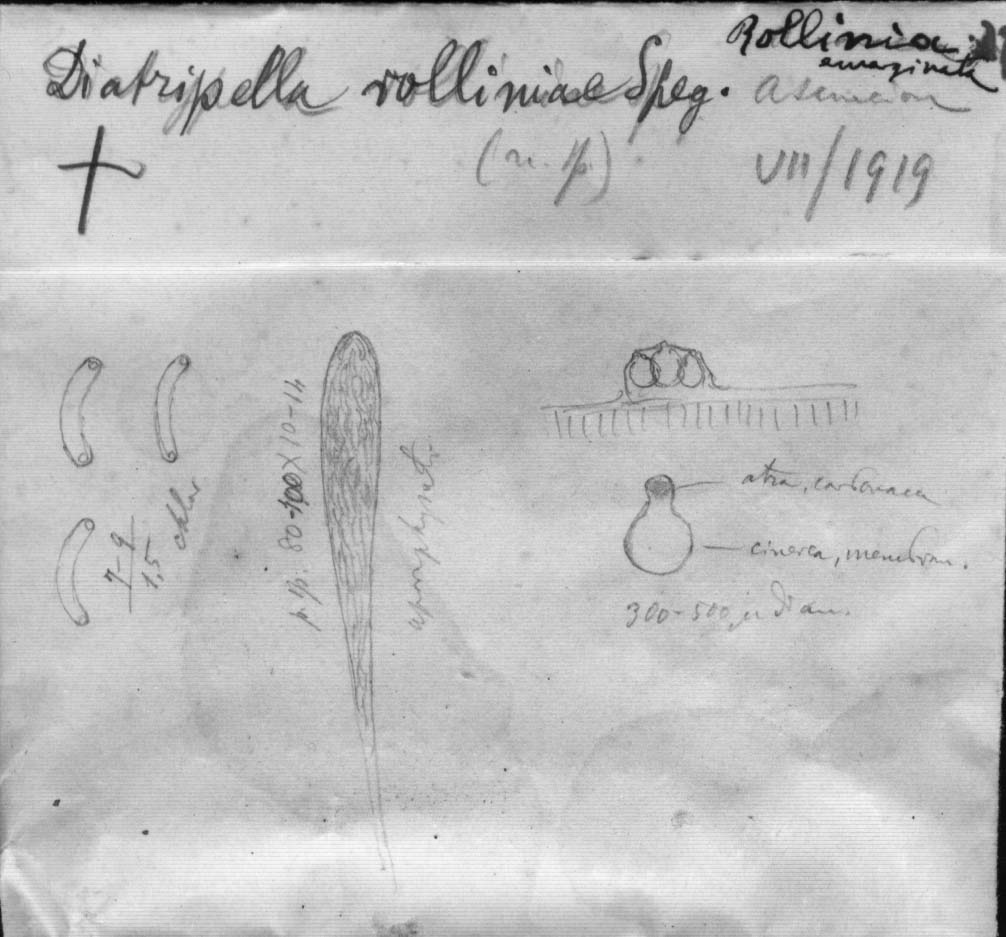 Diatrypella rolliniae Speg.
Rollinia
emarginata
Asuncion
(n. sp.)
VII/1919
7-9
1,5
chlor
p. sp. 80-100 X 10-14
aparaphysat.
atra, carbonacea
cinerea, membran.
300-500 µ diam.